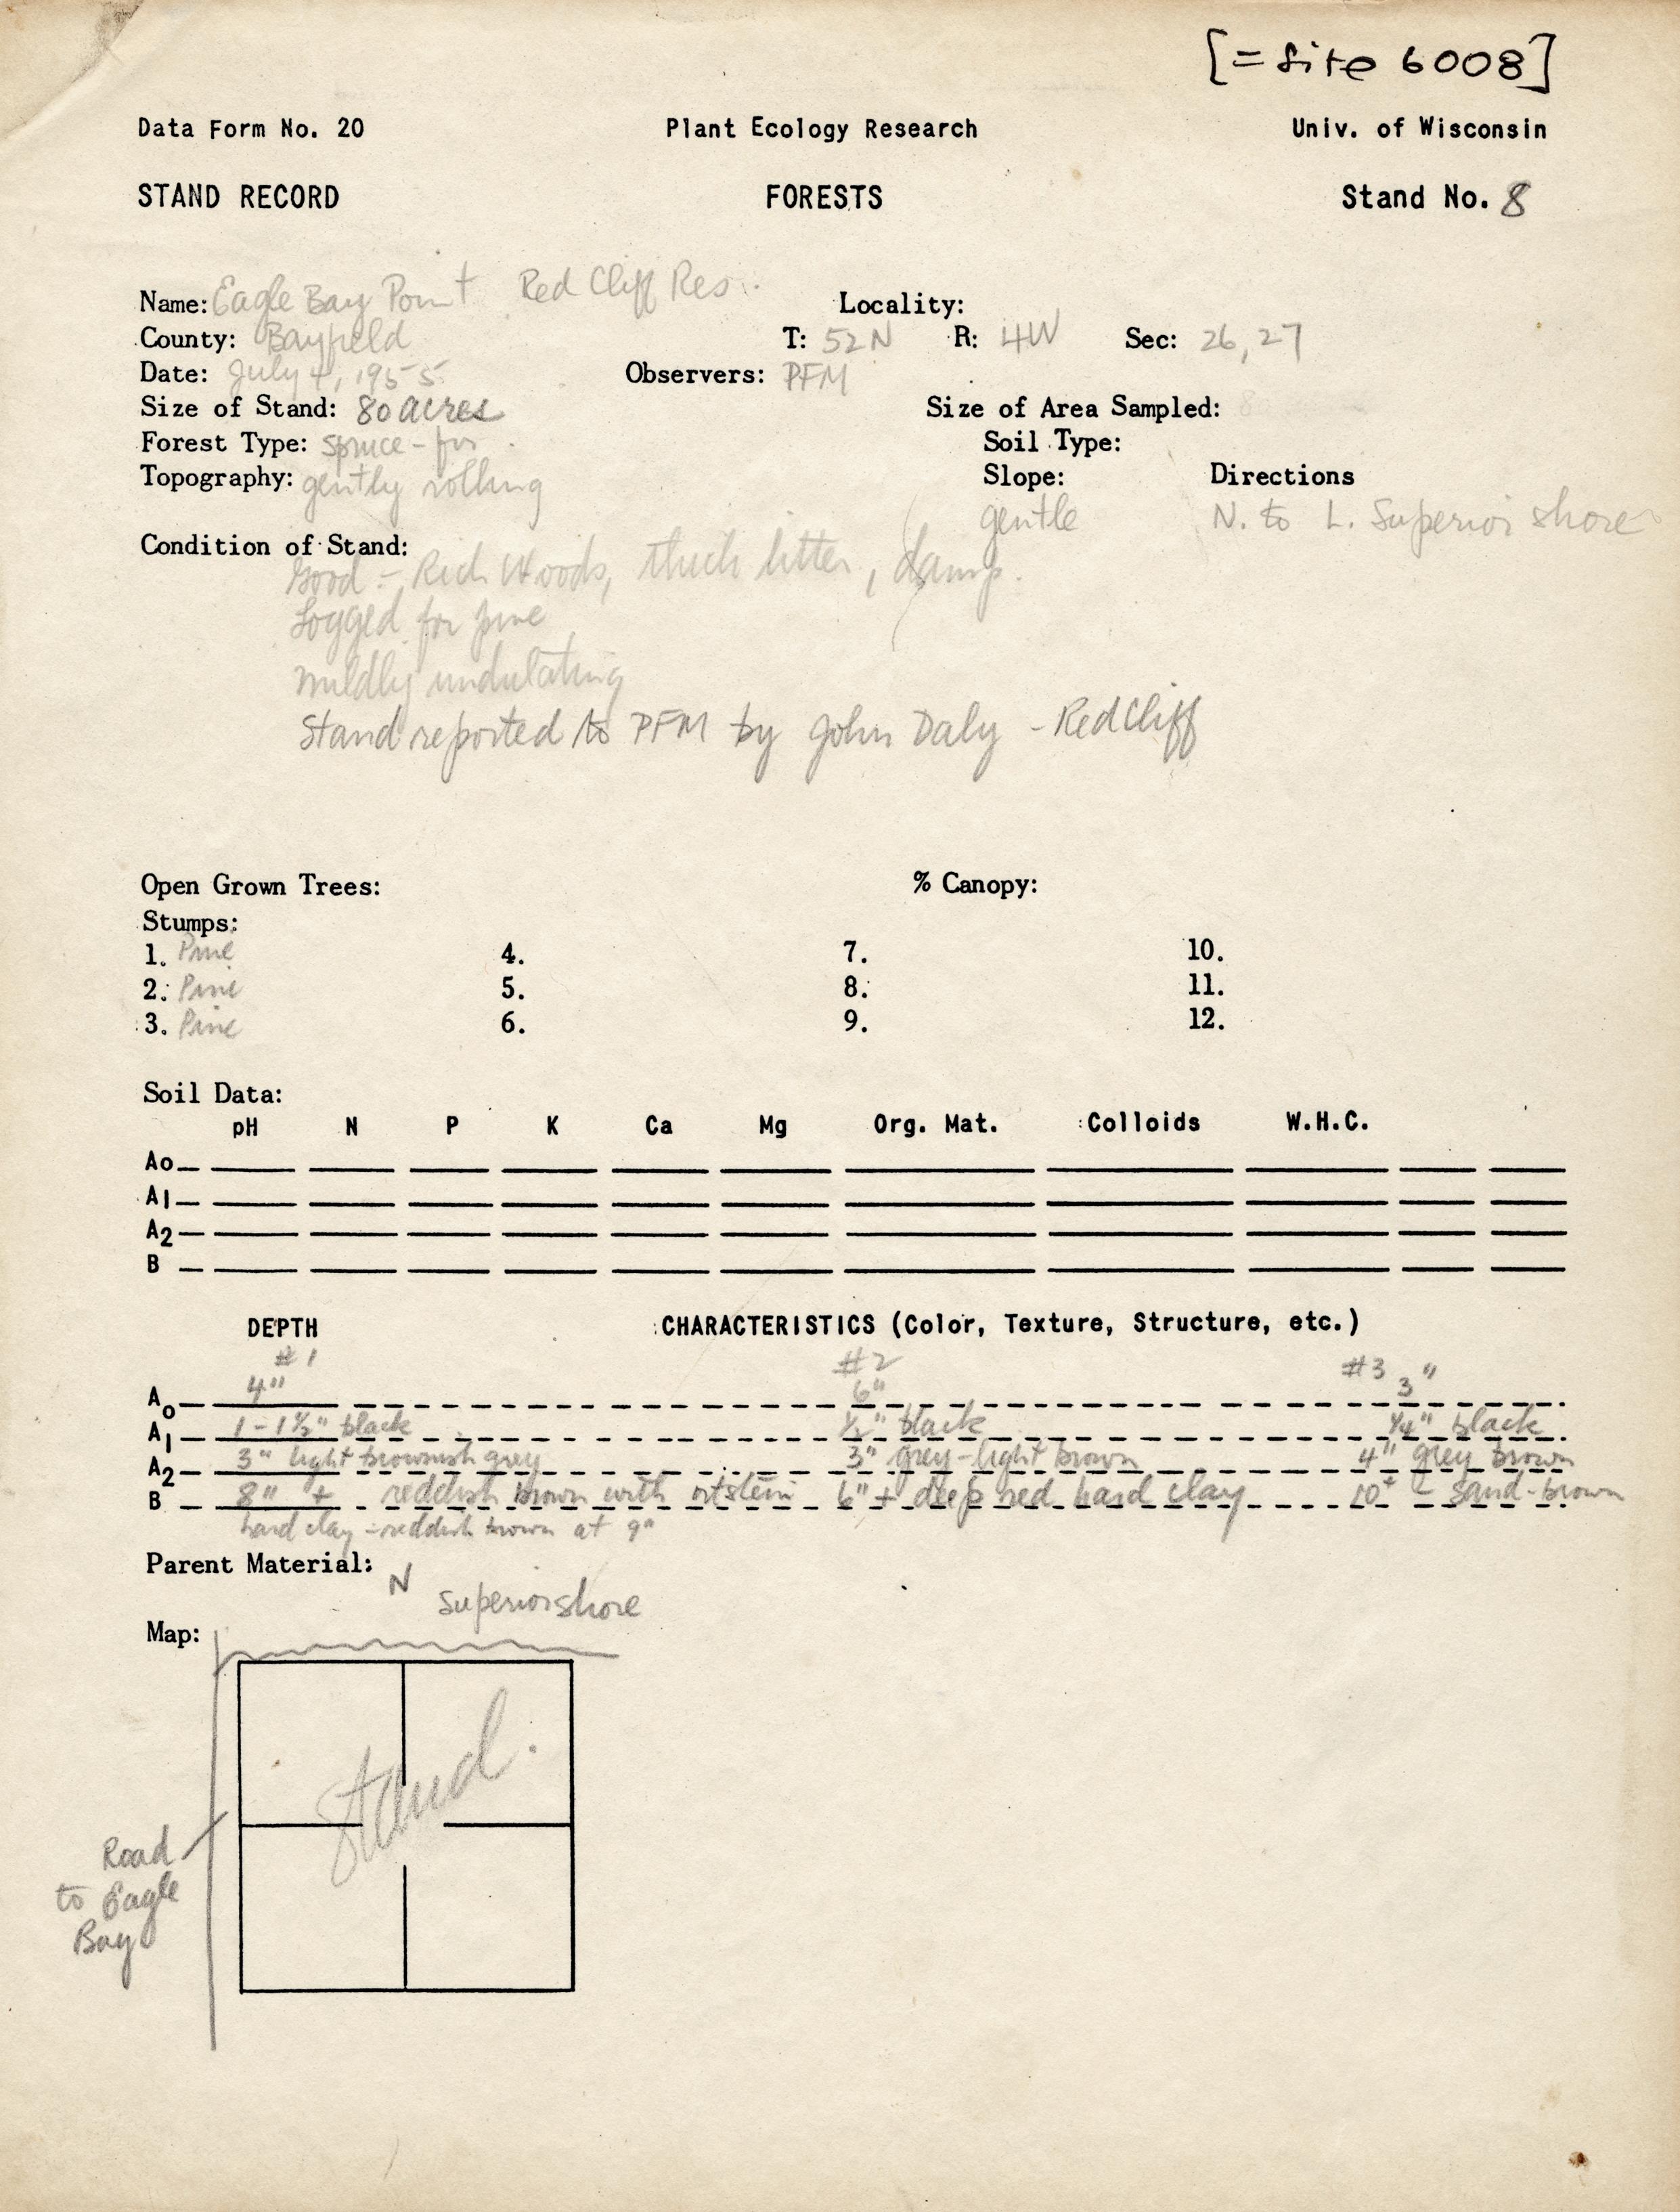 [= Site 6008]
Data Form No. 20 Plant Ecology Research Univ. of Wisconsin
STAND RECORD FORESTS Stand No. 8
Name: Eagle Bay Point Red Cliff Res. Locality:
County: Bayfield T: 52N R: 4W Sec: 26, 27
Date: July 4, 1955 Observers: PFM
Size of Stand: 80 acres Size of Area Sampled:
Forest Type: spruce-fir Soil Type:
Topography: gently rolling Slope: Directions
gentle N. to L. Superior shore
Condition of Stand:
Good - Rich Woods, thick litter, damp.
Logged for pine
mildly undulating
Stand reported to PFM by John Daly - Red Cliff
Open Grown Trees: % Canopy:
Stumps:
1. Pine 4. 7. 10.
2. Pine 5. 8. 11.
3. Pine 6. 9. 12.
Soil Data:
pH N P K Ca Mg Org. Mat. Colloids W.H.C.
Ao
A1
A2
B
DEPTH CHARACTERISTICS (Color, Texture, Structure, etc.)
#1 #2 #3
Ao 4" 6" 3"
A1 1-1½" black ½" black ¼" black
A2 3" light brownish grey 3" grey-light brown 4" grey brown
B 8" + reddish brown with ortstein 6"+ deep red hard clay 10+ - sand-brown
hard clay - reddish brown at 9"
Parent Material:
N
Superior shore
Map:
Stand.
Road
to Eagle
Bay